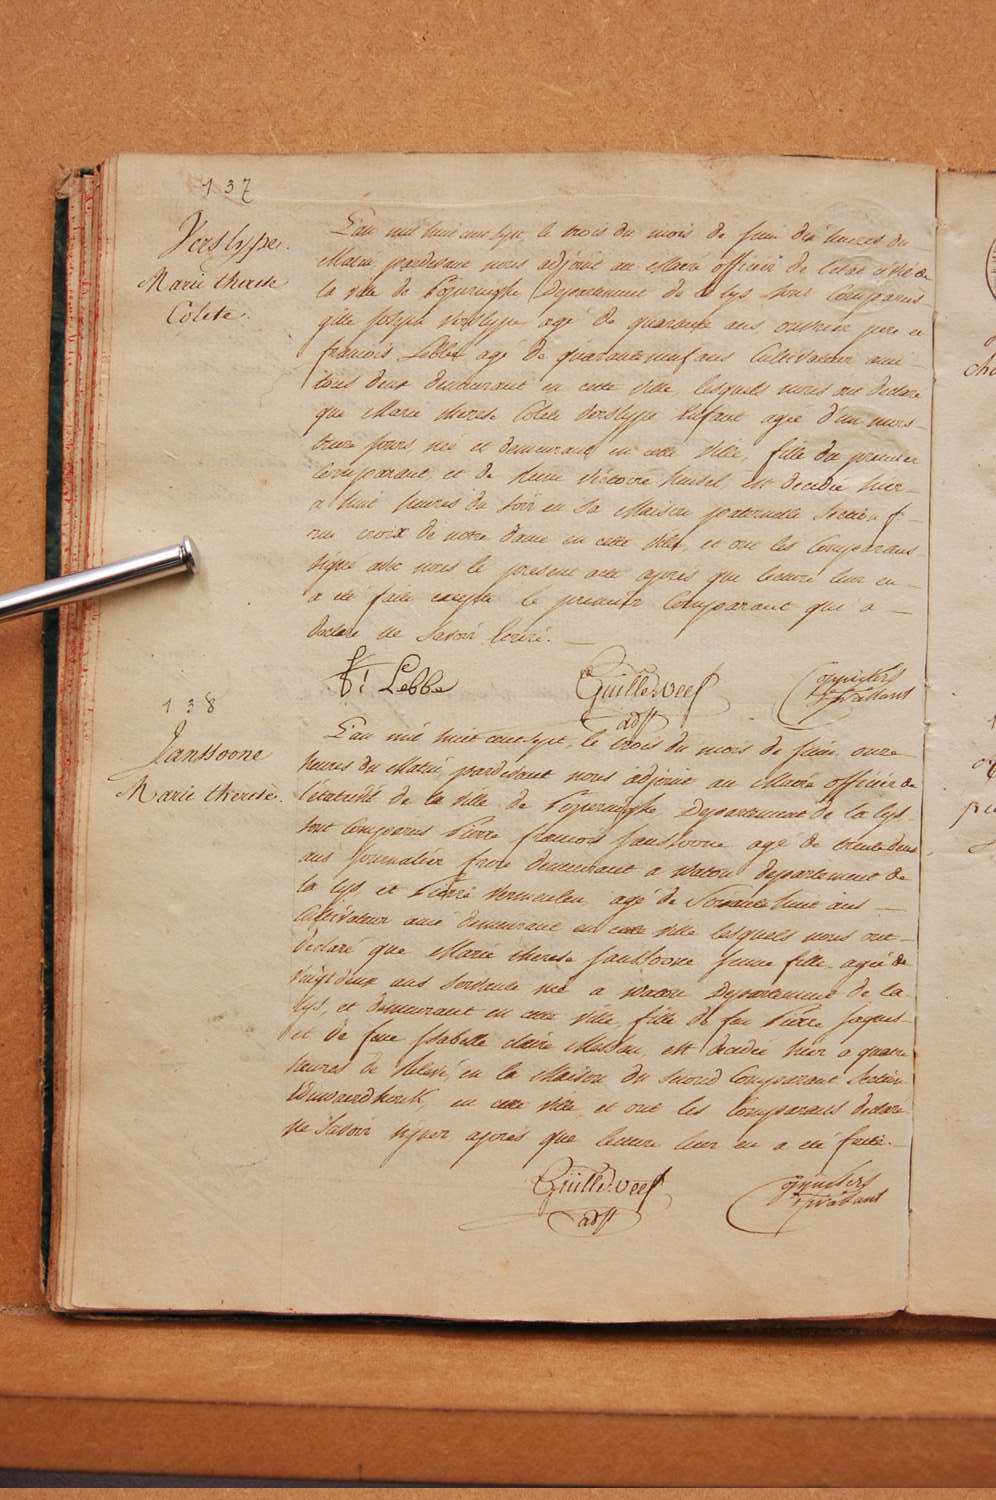 137
Verslype
Marie therese
Colete.
L'an mil huit cent sept, le trois du mois de juin dix heures du
Matin pardevant nous adjoint au Maire officier de l'état civil de
la ville de Poperinghe Departement de la lys sont Comparus
gille joseph verslype agé de quarante ans ouvrier pere et
francois Lebbe agé de quarante neuf ans Cultivateur ami
tous deux demeurant en cette ville, lesquels nous ont declare
que Marie therese Colete verslype Enfant agée d'un mois
treize jours née et demeurant en cette ville, fille du premier
Comparant et de victoire est decedée hier
a huit heures du soir en sa Maison paternelle Section f
rue croix de notre dame en cette ville, et ont les Comparans
signé avec nous le present acte après que lecture leur en
a été faite excepté le premier Comparant qui a
declare ne savoir ecrire.
f: Lebbe
adjt
138
Janssoone
Marie therese.
L'an mil huit cent sept, le trois du mois de juin onze
heures du Matin, pardevant nous adjoint au Maire officier de
l'état civil de la ville de Poperinghe, Departement de la lys
sont Comparus Pierre francois Janssoone agé de trente deux
ans journalier frere demeurant a watou departement de
la lys et Pierre Vermeulen agé de Soixante huit ans
Cultivateur ami demeurant en cette ville lesquels nous ont
declaré que Marie therese Janssoone jeune fille agée de
vingt deux ans servante née a watou Departement de la
lys, et demeurant en cette ville, fille de feu Pierre jaques
et de feue isabelle claire est decedée hier a quatre
heures de relevé, en la Maison du second Comparant Section
en cette ville et ont les Comparans declare
ne Savoir signer après que lecture leur en a été faite.
adjt